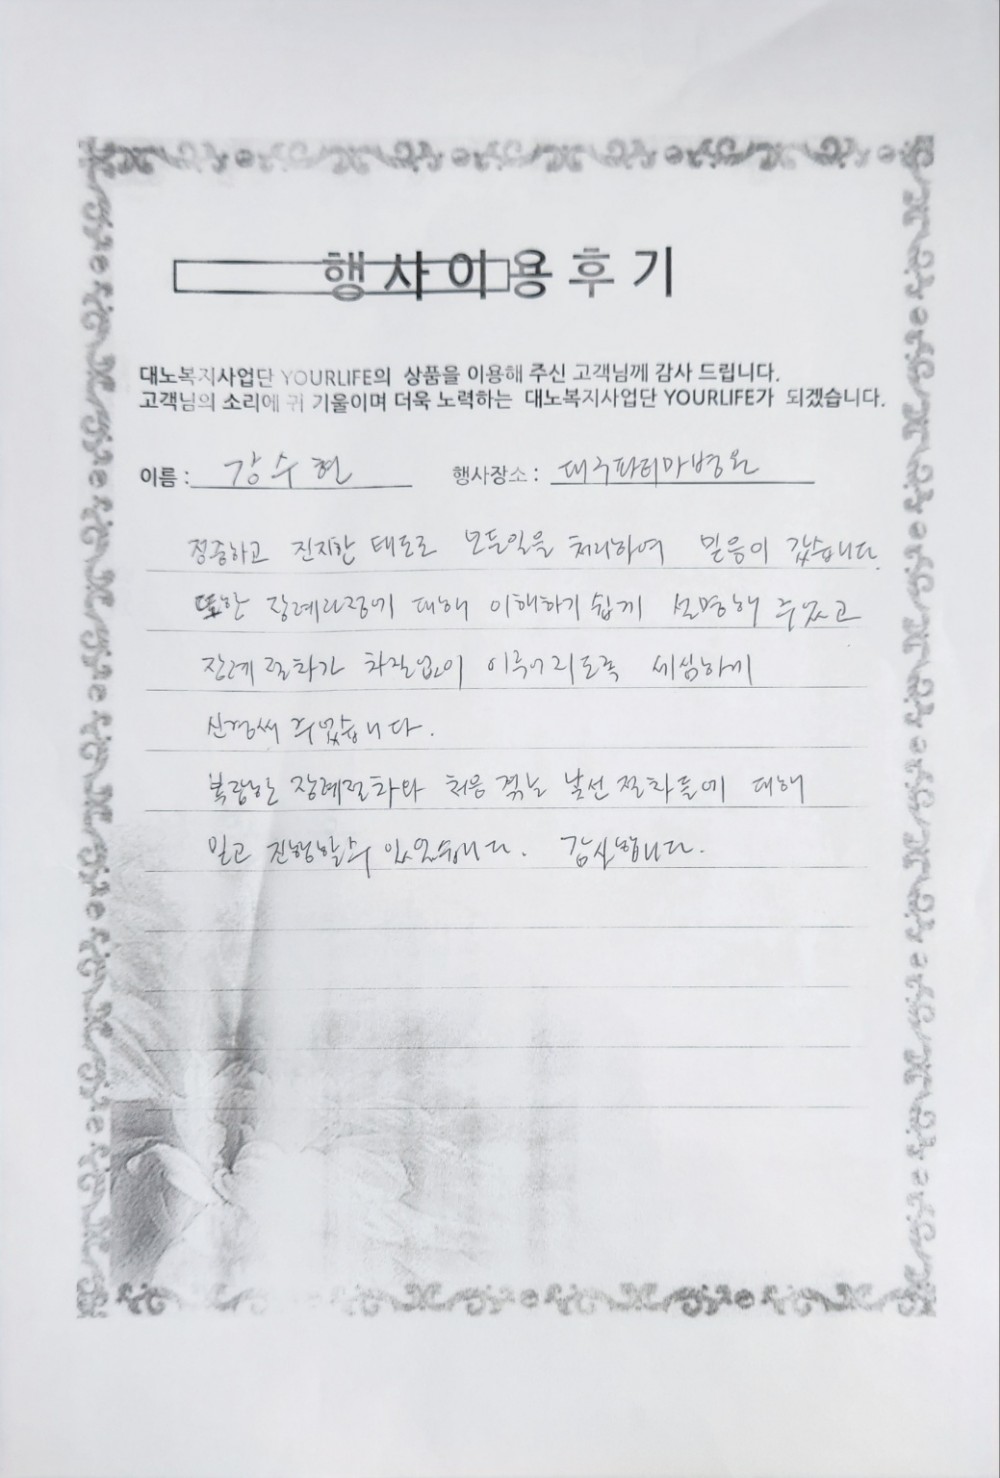 행사이용후기
대노복지사업단 YOURLIFE의 상품을 이용해 주신 고객님께 감사 드립니다.
고객님의 소리에 귀 기울이며 더욱 노력하는 대노복지사업단 YOURLIFE가 되겠습니다.
이름 : 강수현 행사장소 : 대구파티마병원
정중하고 진지한 태도로 모든일을 처리하여 믿음이 갔습니다.
또한 장례과정에 대해 이해하기 쉽게 설명해 주었고
장례 절차가 차질없이 이루어지도록 세심하게
신경써 주었습니다.
복잡한 장례절차와 처음 겪는 낯선 절차들에 대해
믿고 진행할수 있었습니다. 감사합니다.